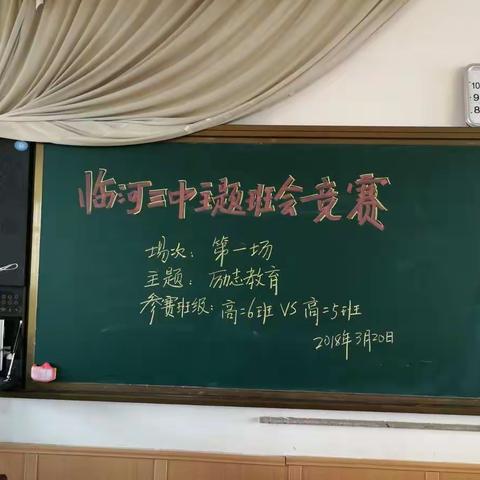 临河三中主题班会竞赛
场次：第一场
主题：励志教育
参赛班级：高二6班 VS 高二5班
2018年3月20日
10
9
8